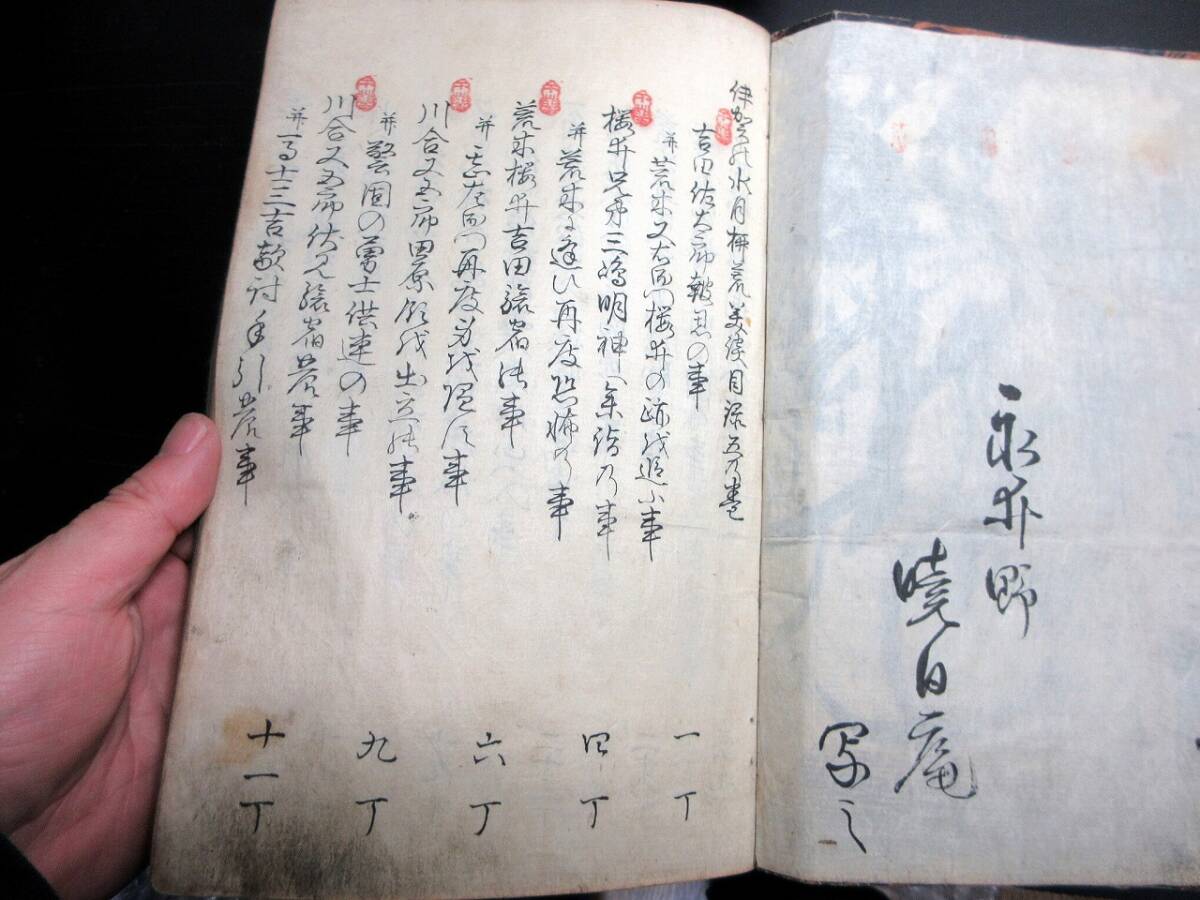 永井野
曉日庵
写之
伊賀水月荒美談目録五乃巻
吉田佐太郎報恩の事
并荒木又右衛門桜井の跡を追ふ事
桜井兄弟三嶋明神へ参詣乃事
并荒木に逢ひ再度恐怖乃事
荒木桜井吉田旅宿の事
并又右衛門再度の事
川合又五郎田原を出立の事
并警固の勇士供連の事
川合又五郎伏見旅宿の事
并十三吉敵討手引の事
一丁
四丁
六丁
九丁
十一丁